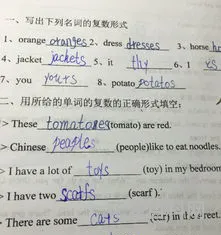 一、写出下列名词的复数形式
1、orange oranges 2、dress dresses 3、horse
4、jacket jackets 5、it thy 6、I
7、you yours 8、potato potatos
二、用所给的单词的复数的正确形式填空:
> These tomatoes (tomato) are red.
> Chinese peoples (people)like to eat noodles.
> I have a lot of toys (toy) in my bedroom
> I have two scarfs (scarf ).
> There are some cats (car) in the street.